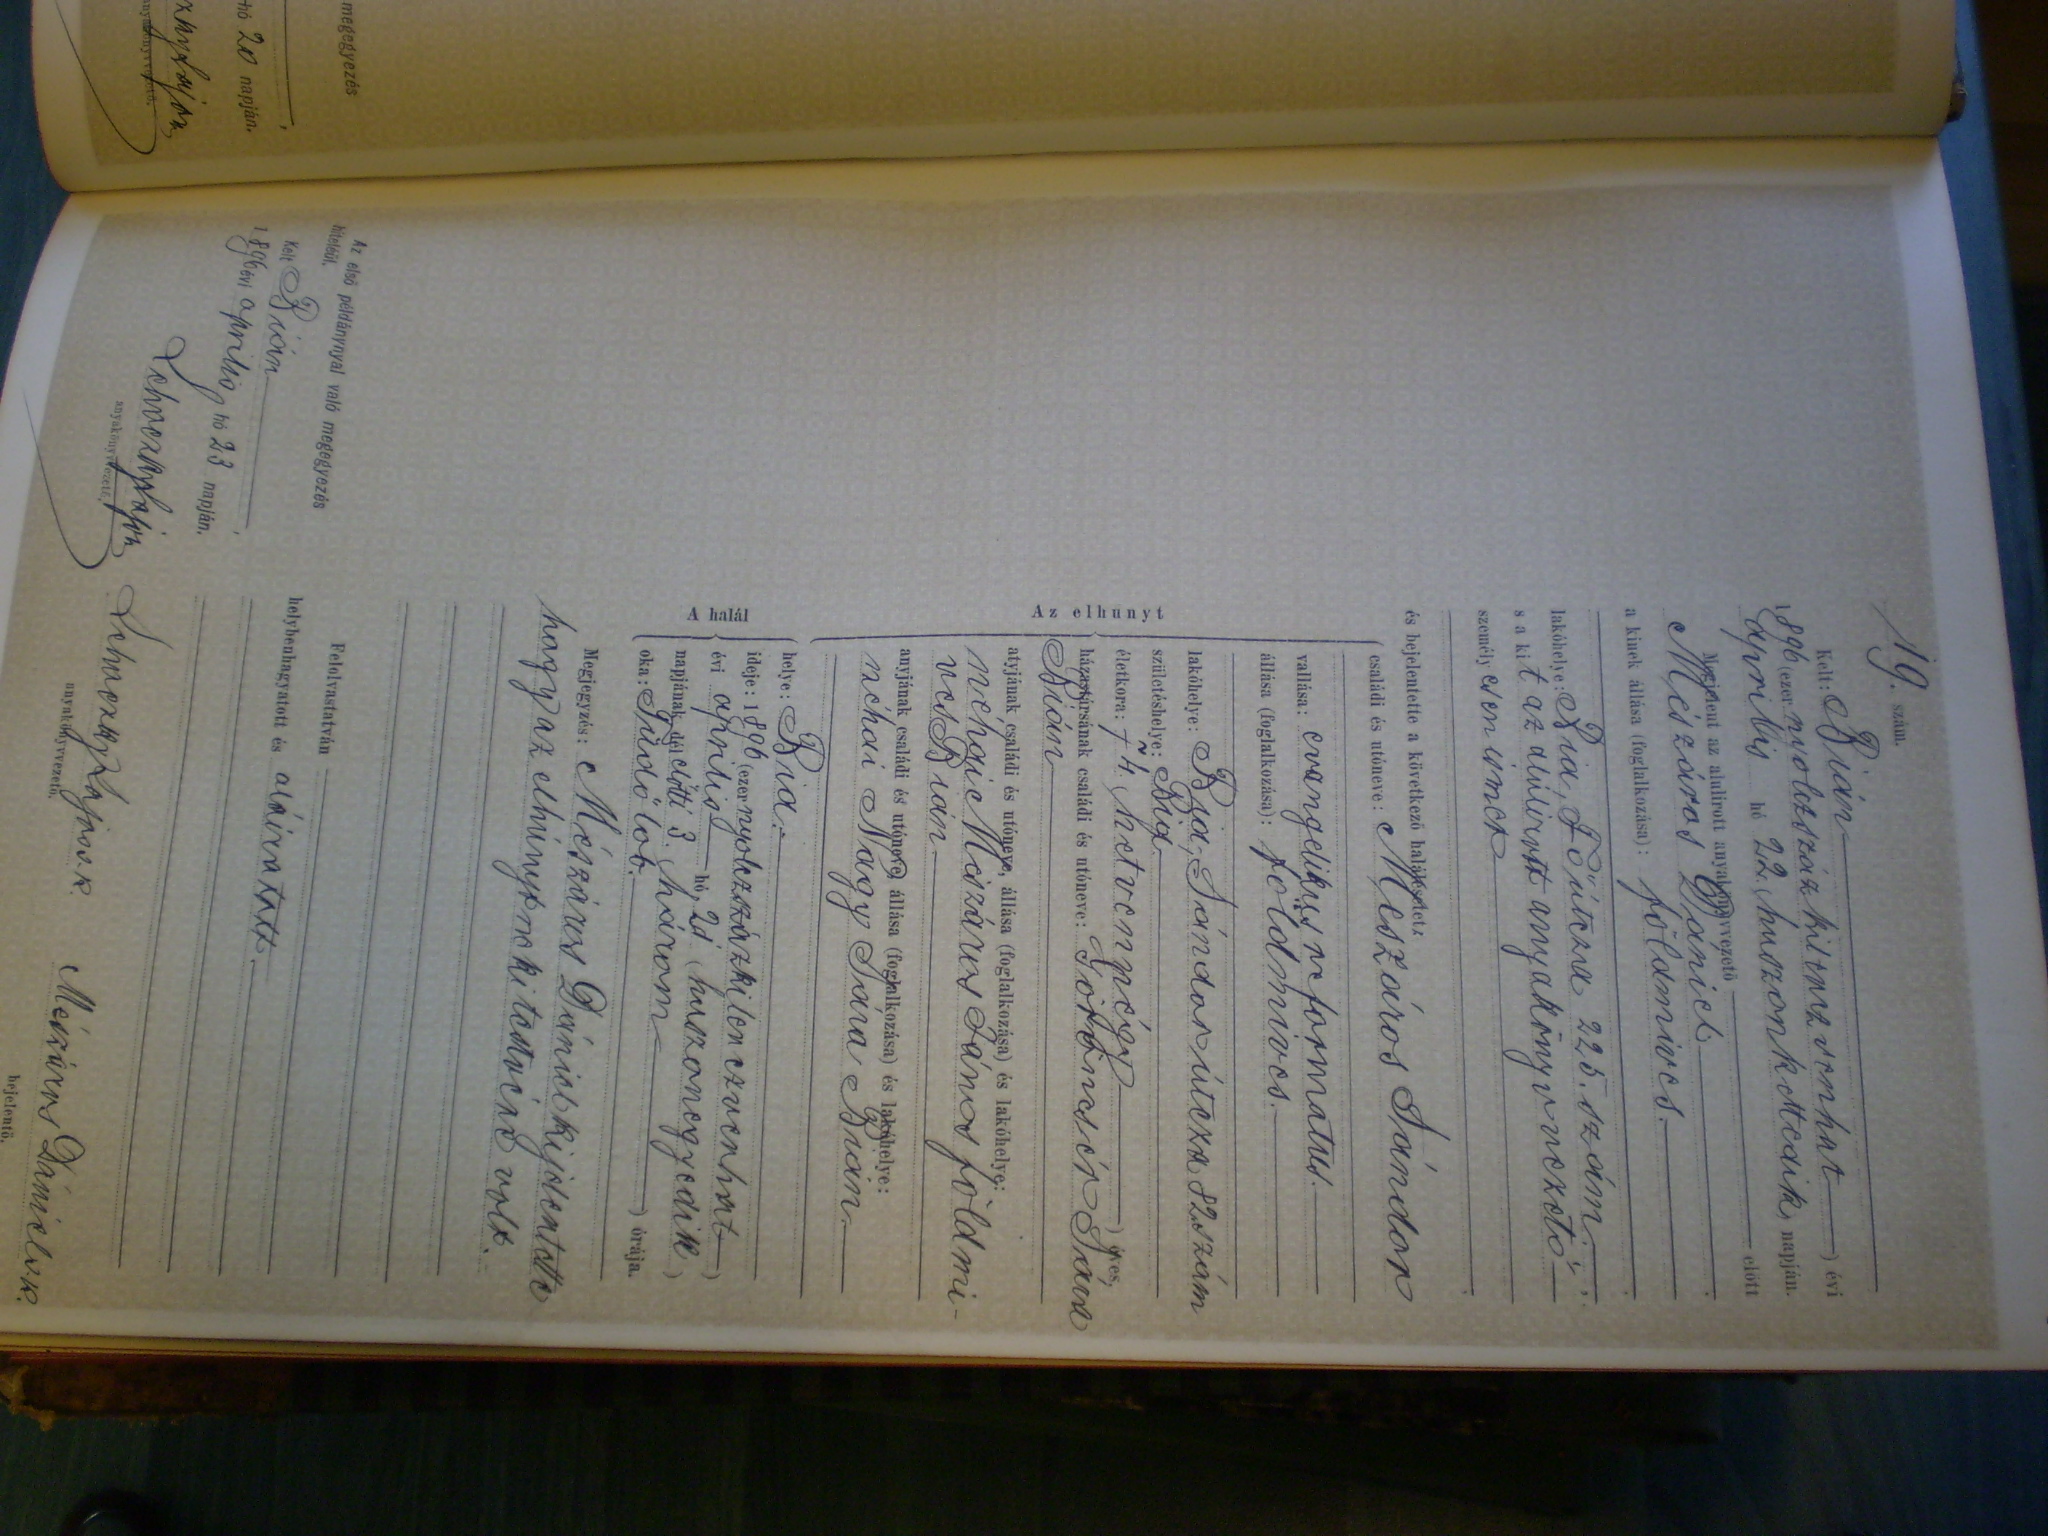 19. szám.
Kelt: Bián
1896 (ezernyolczszázkilenczvenhat) évi
április hó 22 (huszonkettedik) napján.
Megjelent az alulirott anyakönyvvezető előtt
Mészáros Dániel
a kinek állása (foglalkozása): földmives
lakóhelye: Bia, Fő útcza 225. szám;
s a kit az alúlirott anyakönyvvezető
személyesen ismer
és bejelentette a következő halálesetet:
Az elhunyt
családi és utóneve: Mészáros Sándor
vallása: evangelikus reformatus.
állása (foglalkozása): földmives.
lakóhelye: Bia, Sándor útcza 82. szám
születéshelye: Bia
életkora: 74 (hetvennégy) éves,
házastársának családi és utóneve: Sára
Bián
atyjának családi és utóneve, állása (foglalkozása) és lakóhelye:
néhaie Mészáros János földmi-
ves Bián
anyjának családi és utóneve, állása (foglalkozása) és lakóhelye:
néhai Nagy Sára Bián.
A halál
helye: Bia.
ideje: 1896 (ezernyolczszázkilenczvenhat)
évi április hó 21 (huszonegyedik)
napjának dél előtti 3. (három) órája.
oka: Tüdőlob.
Megjegyzés: Mészáros Dániel kijelentette
hogy az elhúnytnek itestvére volt.
Felolvastatván
helybenhagyatott és aláíratott.
anyakönyvvezető.
Mészáros Dániel s.k.
bejelentő.
Az első példánynyal való megegyezés
hiteléül.
Kelt Bián
1896 évi április hó 23 napján.
anyakönyvvezető.
megegyezés
hó 20 napján.